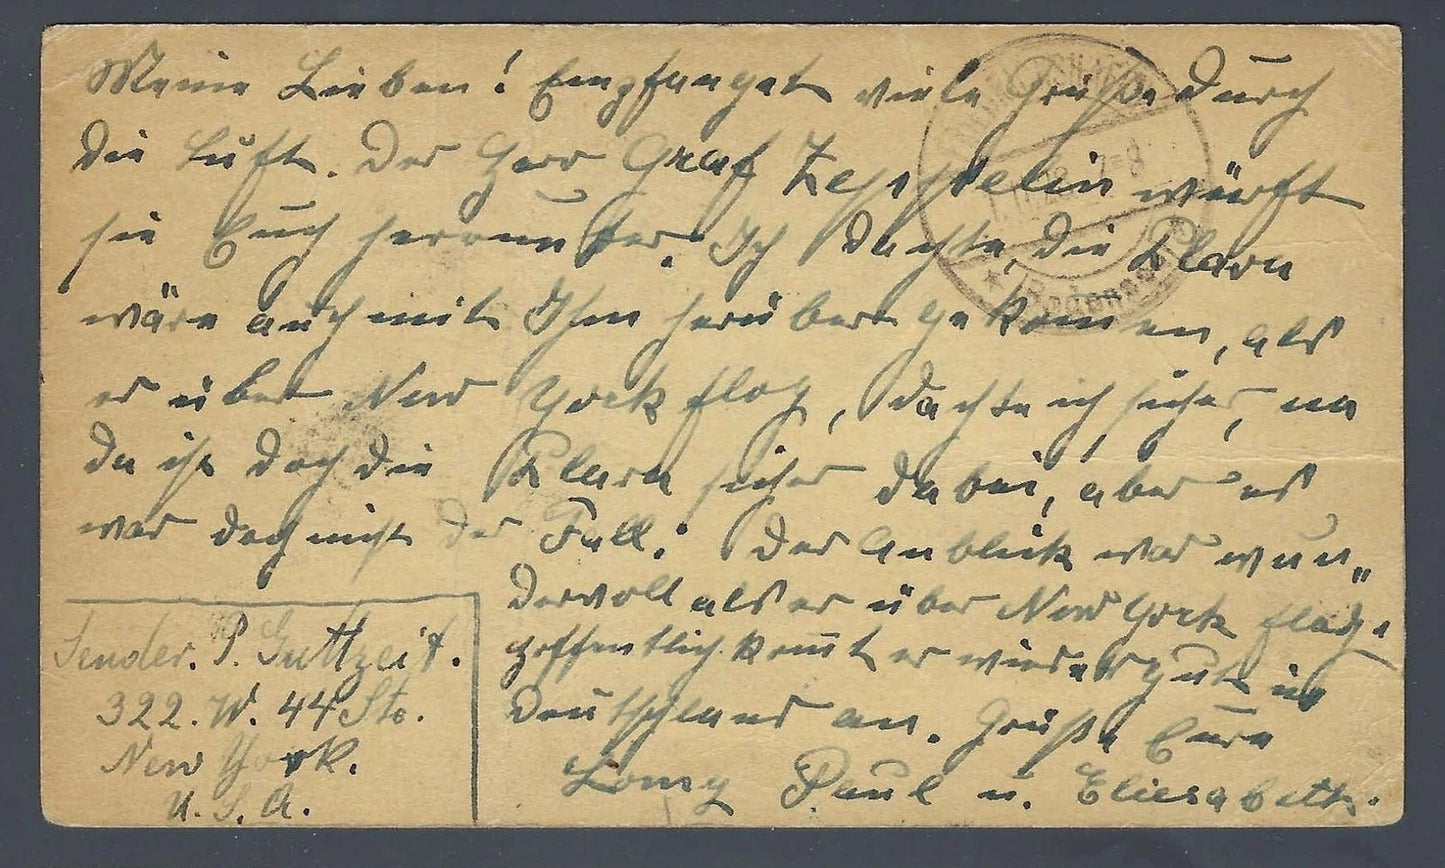 Meine Lieben! Empfanget viele Grüße durch
die Luft. Der Herr Graf Zeppelin würft
sie Euch herrunter. Ich dachte, die Klara
wäre auch mit Ihm herüber gekommen, als
er über New York flog, dachte ich sicher, na
da ist doch die Klara sicher dabei, aber es
war doch nicht der Fall. Der Anblick war wun„
dervoll als er über New York flog,
hoffentlich kommt er wieder gut in
Deutschland an. Grüße Eure
Paul u. Eliesabetth.
Sender. P. Guttzeit.
322. W. 44 Str.
New York.
U. S. A.
FRIEDRICHSHAFEN
7-8
(Bodensee)